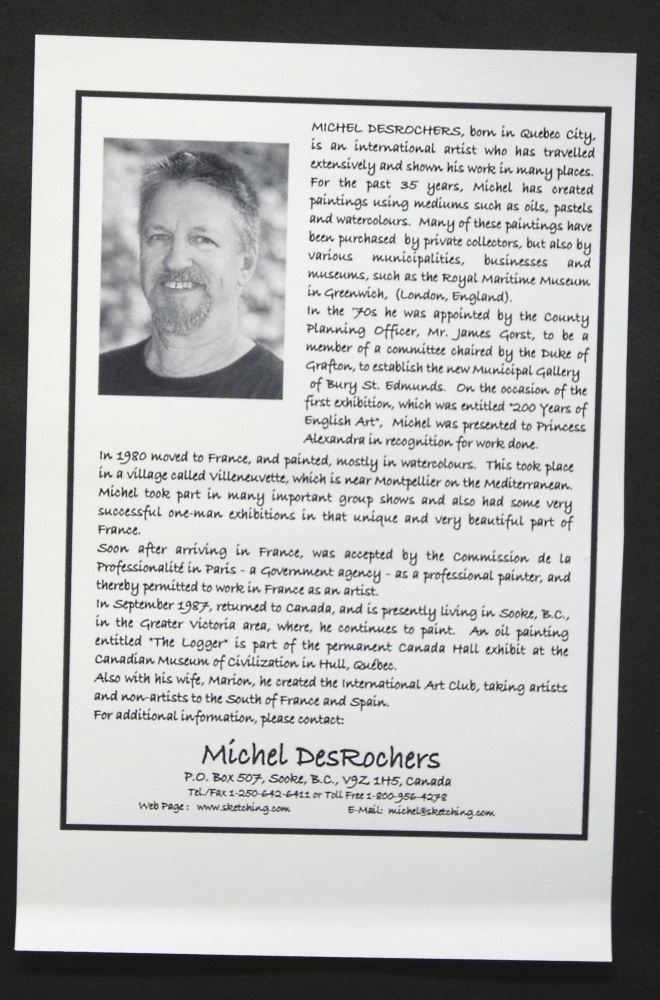 MICHEL DESROCHERS, born in Quebec City,
is an international artist who has travelled
extensively and shown his work in many places.
For the past 35 years, Michel has created
paintings using mediums such as oils, pastels
and watercolours. Many of these paintings have
been purchased by private collectors, but also by
various municipalities, businesses and
museums, such as the Royal Maritime Museum
in Greenwich, (London, England).
In the '70s he was appointed by the County
Planning Officer, Mr. James Gorst, to be a
member of a committee chaired by the Duke of
Grafton, to establish the new Municipal Gallery
of Bury St. Edmunds. On the occasion of the
first exhibition, which was entitled "200 Years of
English Art", Michel was presented to Princess
Alexandra in recognition for work done.
In 1980 moved to France, and painted, mostly in watercolours. This took place
in a village called Villeneuvette, which is near Montpellier on the Mediterranean.
Michel took part in many important group shows and also had some very
successful one-man exhibitions in that unique and very beautiful part of
France.
Soon after arriving in France, was accepted by the Commission de la
Professionalité in Paris - a Government agency - as a professional painter, and
thereby permitted to work in France as an artist.
In September 1987, returned to Canada, and is presently living in Sooke, B.C.,
in the Greater Victoria area, where, he continues to paint. An oil painting
entitled "The Logger" is part of the permanent Canada Hall exhibit at the
Canadian Museum of Civilization in Hull, Québec.
Also with his wife, Marion, he created the International Art Club, taking artists
and non-artists to the South of France and Spain.
For additional information, please contact:
Michel DesRochers
P.O. Box 507, Sooke, B.C., V9Z 1H5, Canada
Tel./Fax 1-250-642-6411 or Toll Free 1-800-956-4278
Web Page: www.sketching.com E-Mail: michel@sketching.com